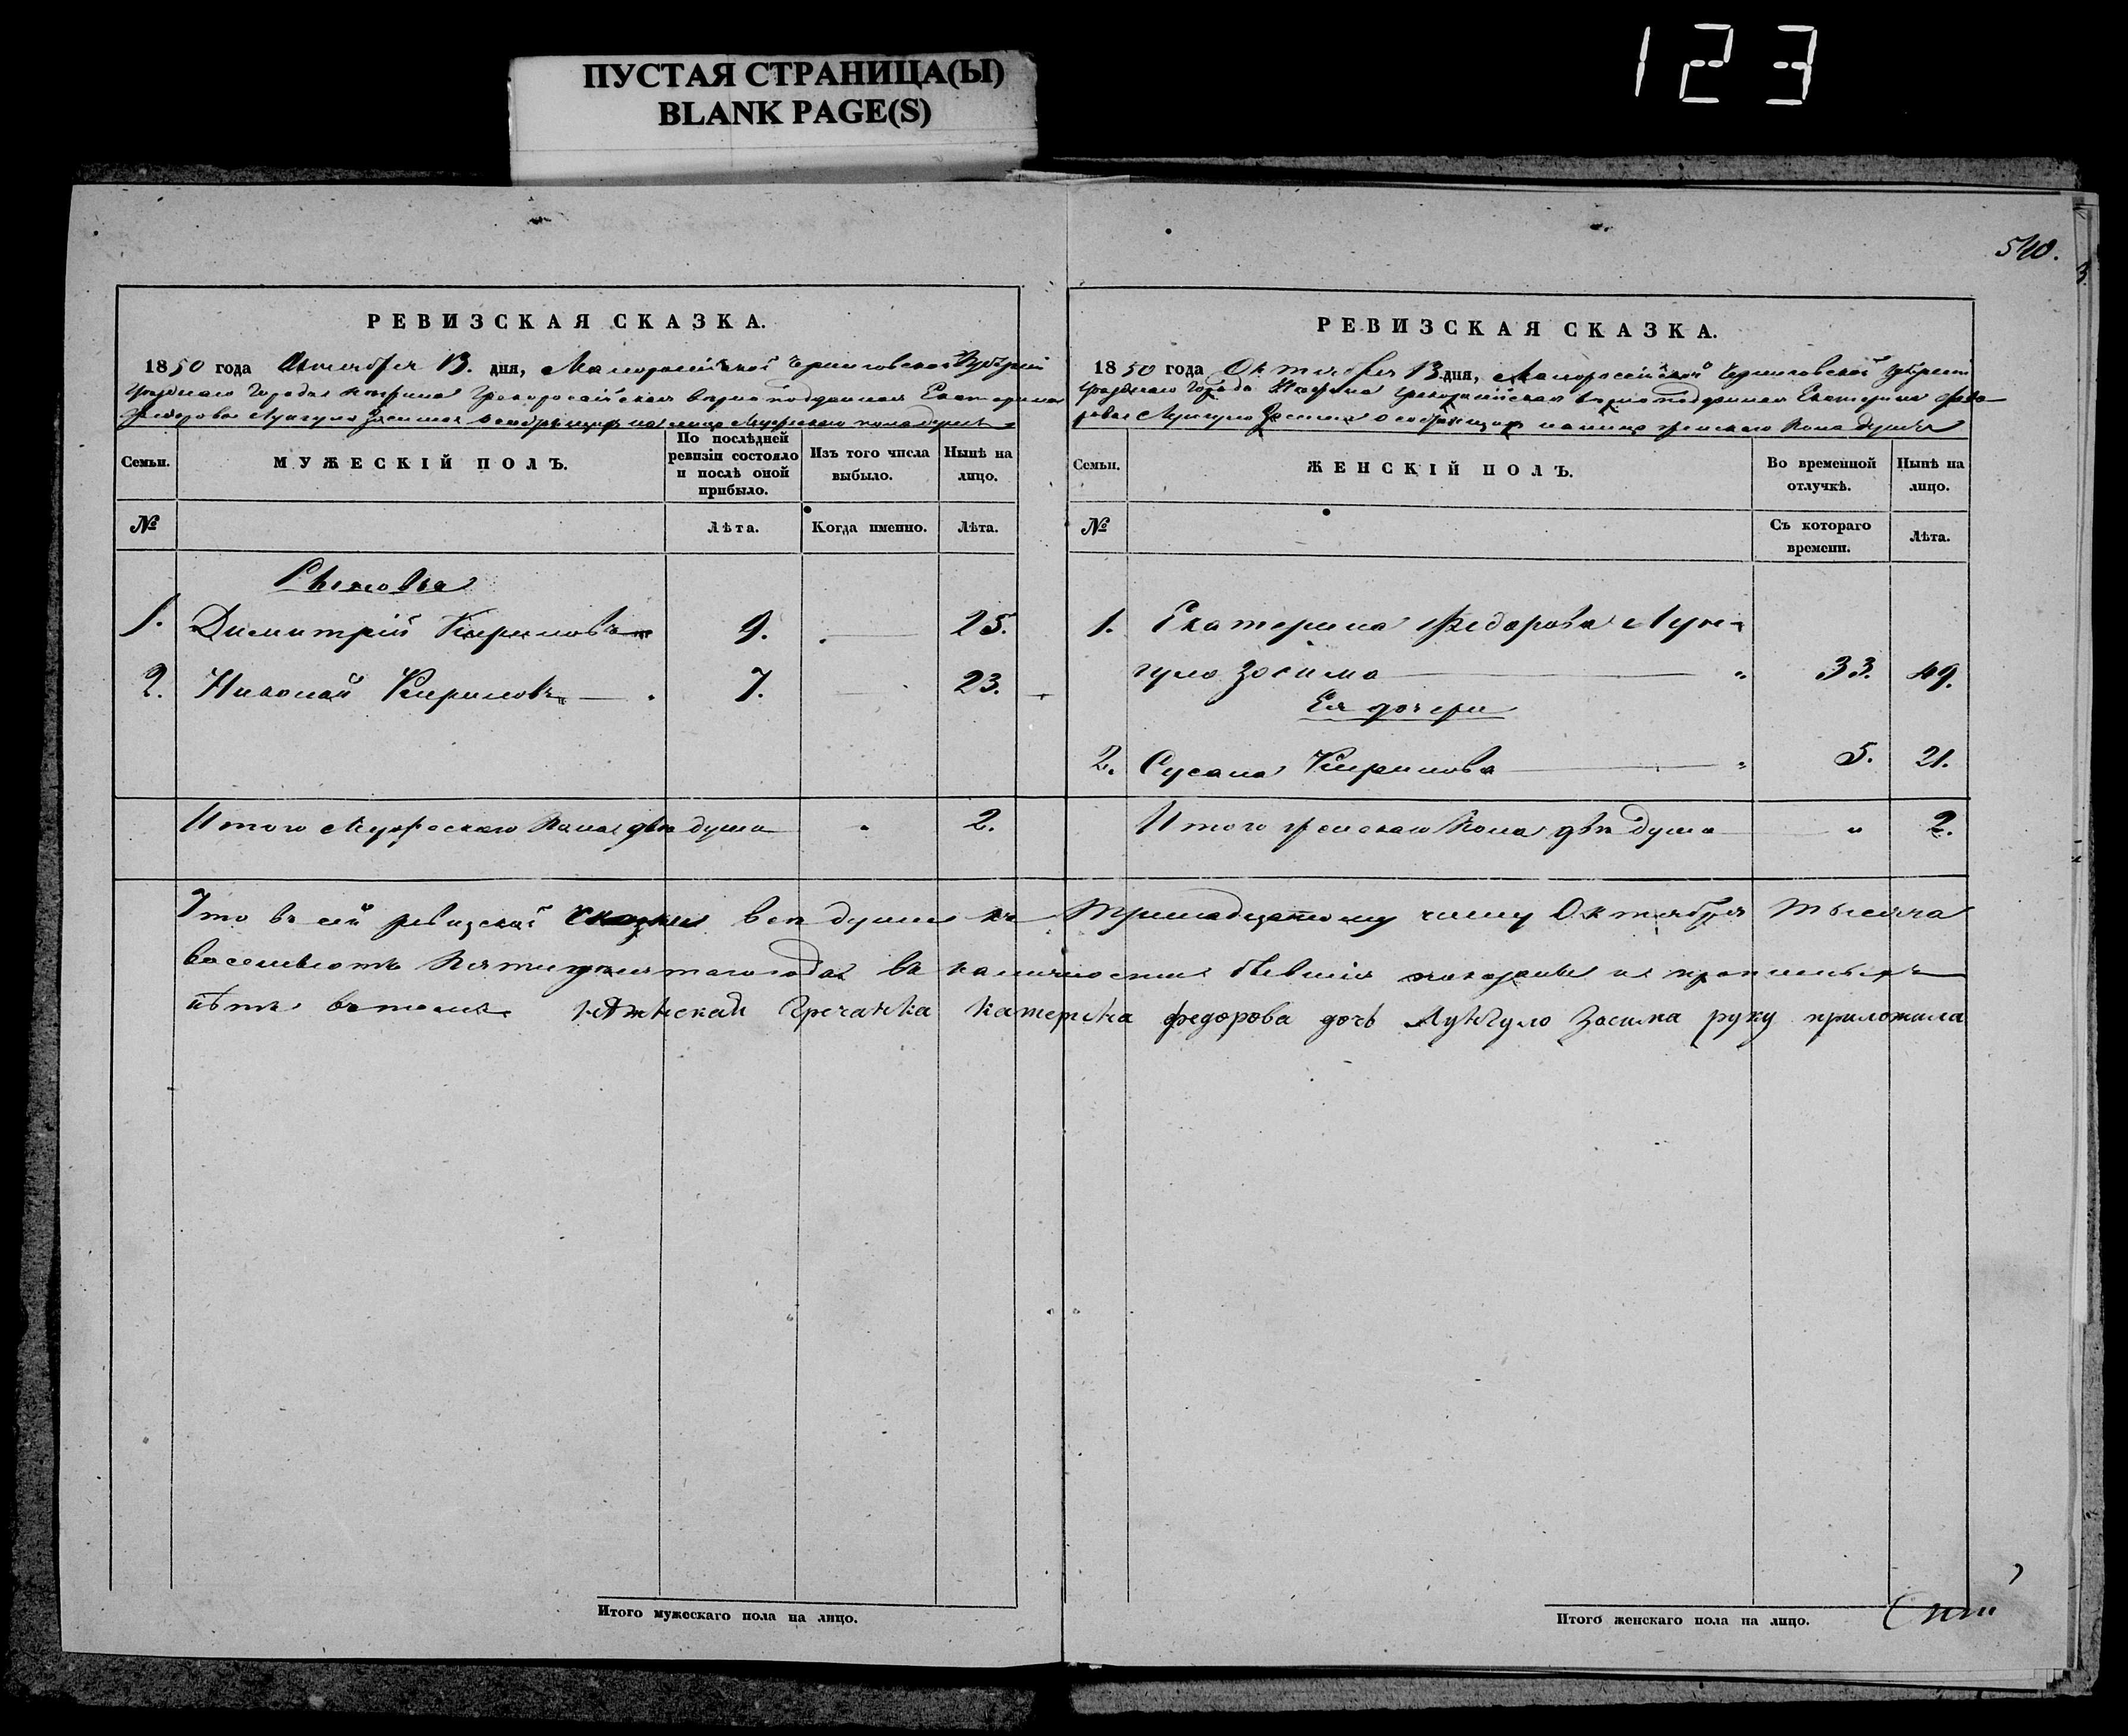 ПУСТАЯ СТРАНИЦА(Ы)
BLANK PAGE(S)
123
540.
РЕВИЗСКАЯ СКАЗКА.
1850 года Октября 13. дня, Малороссійской Черниговской Губерніи
Уѣзднаго Города Нѣжина Грекоросійская вѣрноподданная Екатерина
Федорова Лунгуло Зосима о состоящихъ на лицо Мужескаго пола душъ
Семьи.
МУЖЕСКІЙ ПОЛЪ.
По послѣдней ревизіи состояло и послѣ оной прибыло.
Изъ того числа выбыло.
Нынѣ на лицо.
№
Лѣта.
Когда именно.
Лѣта.
Сыновья
1. Димитрій Кириловъ 9. 25.
2. Николай Кириловъ 7. 23.
Итого Мужескаго Пола двѣ души " 2.
РЕВИЗСКАЯ СКАЗКА.
1850 года Октября 13 дня, Малороссійской Черниговской Губерніи
Уѣзднаго Города Нѣжина Грекоросійская вѣрноподданная Екатерина Федо-
рова Лунгуло Зосима о состоящихъ на лицо женскаго Пола душъ
Семьи.
ЖЕНСКІЙ ПОЛЪ.
Во временной отлучкѣ.
Нынѣ на лицо.
№
Съ котораго времени.
Лѣта.
1. Екатерина Федорова Лун-
гуло Зосима " 33. 49.
Ея дочери
2. Сусана Кирилова " 5. 21.
Итого женскаго Пола двѣ души " 2.
Что въ сей ревизской сказки всѣ души къ Тринадцатому числу Октября тысяча
восемьсотъ Пятидесятаго года въ наличности бывшія показаны и прописныхъ
нѣтъ въ томъ нѣжнскаи гречанка катерина федорова дочь Лунгуло Зосима руку приложила
Итого мужескаго пола на лицо.
Итого женскаго пола на лицо.